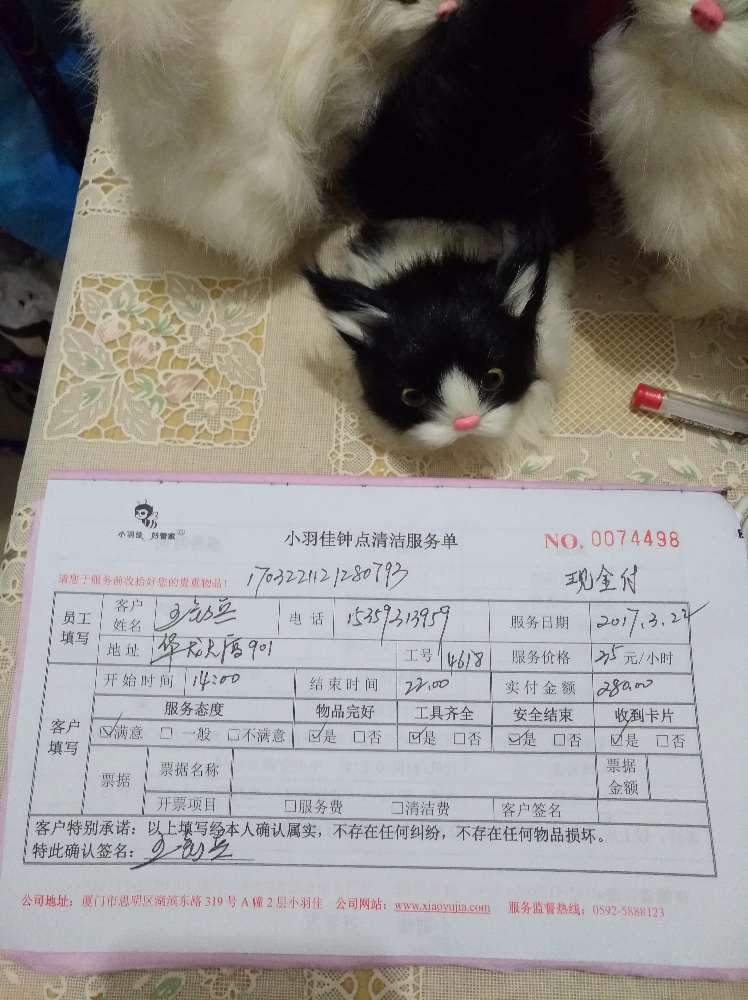 小羽佳 好管家
小羽佳钟点清洁服务单 NO. 0074498
请您于服务前收拾好您的贵重物品! 1703221121280793 现金付
员工填写 客户姓名 电话 15359313959 服务日期 2017.3.22
地址 华龙大厦901 工号 4618 服务价格 35元/小时
客户填写 开始时间 14:00 结束时间 22:00 实付金额 280.00
服务态度 物品完好 工具齐全 安全结束 收到卡片
☑满意 □一般 □不满意 ☑是 □否 ☑是 □否 ☑是 □否 ☑是 □否
票据 票据名称 票据金额
开票项目 □服务费 □清洁费 客户签名
客户特别承诺：以上填写经本人确认属实，不存在任何纠纷，不存在任何物品损坏。
特此确认签名：
公司地址：厦门市思明区湖滨东路319号A幢2层小羽佳 公司网站：www.xiaoyujia.com 服务监督热线：0592-5888123